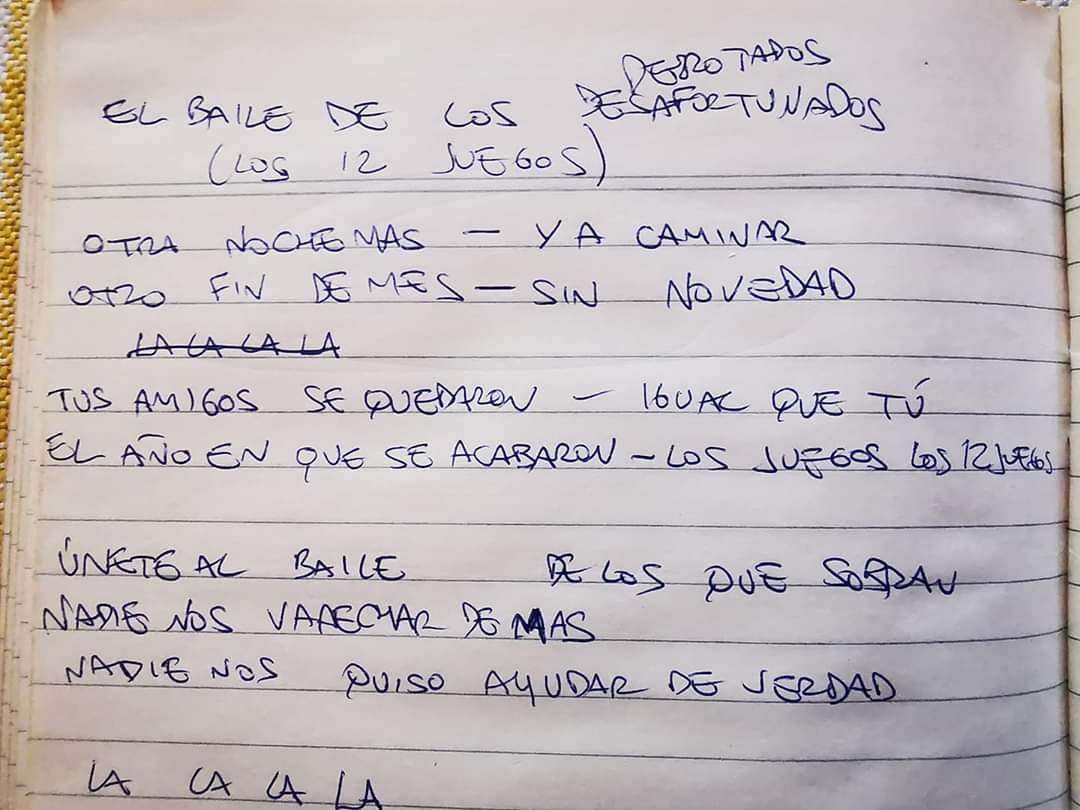 DERROTADOS
EL BAILE DE LOS DESAFORTUNADOS
(LOS 12 JUEGOS)
OTRA NOCHE MAS - Y A CAMINAR
OTRO FIN DE MES - SIN NOVEDAD
LA LA LA LA
TUS AMIGOS SE QUEDARON - IGUAL QUE TÚ
EL AÑO EN QUE SE ACABARON - LOS JUEGOS LOS 12 JUEGOS
ÚNETE AL BAILE DE LOS QUE SOBRAN
NADIE NOS VA A ECHAR DE MAS
NADIE NOS QUISO AYUDAR DE VERDAD
LA LA LA LA